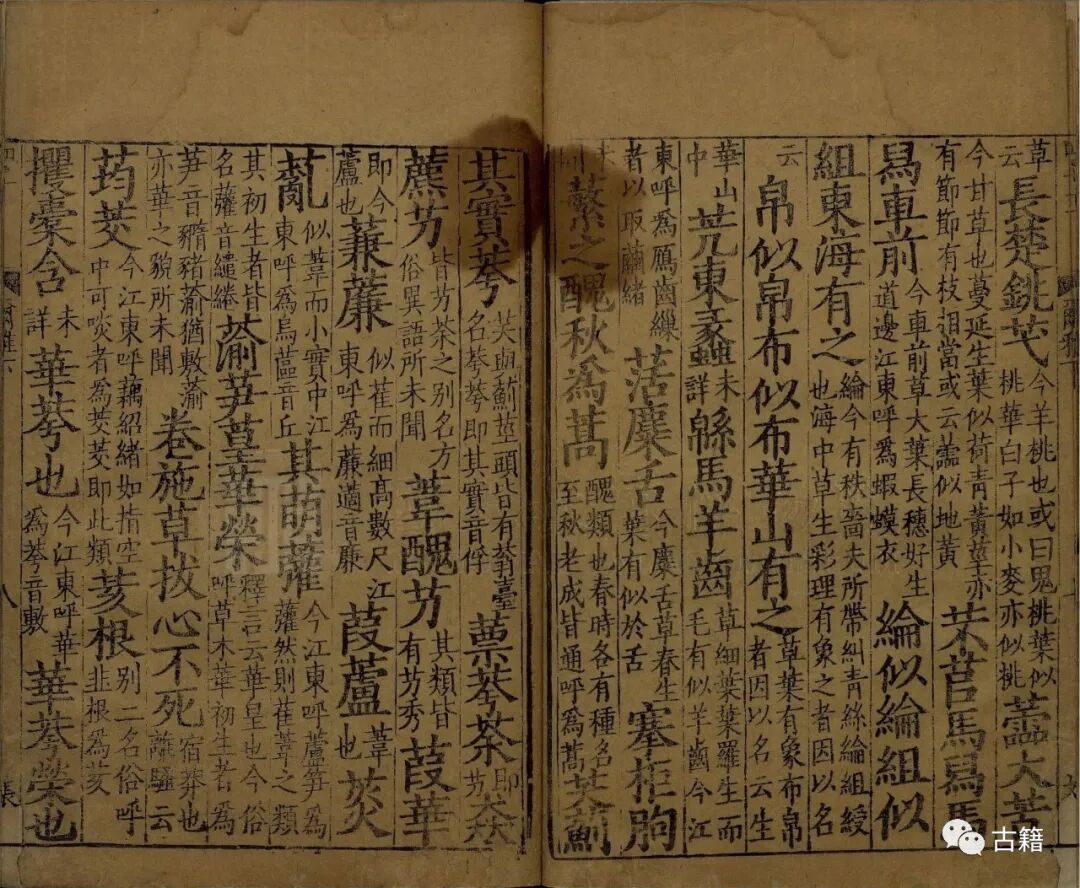 草云長楚銚芅今羊桃也或曰鬼桃葉似桃華白子如小麥亦似桃蘦大苦
今甘草也蔓延生葉似荷青黃莖赤有節節有枝相當或云蘦似地黃芣苢馬舄馬
舄車前今車前草大葉長穗好生道邊江東呼爲蝦蟆衣綸似綸組似
組東海有之綸今有秩嗇夫所帶糾青絲綸組綬也海中草生彩理有象之者因以名
云帛似帛布似布華山有之草葉有象布帛者因以名云生
華山中荒東蠡未詳緜馬羊齒草細葉葉羅生而毛有似羊齒今江
東呼爲鴈齒繅者以取繭緒萿麋舌今麋舌草春生葉有似於舌搴柜朐
蘩之醜秋爲蒿醜類也春時各有種名至秋老成皆通呼爲蒿芺薊
其實荂芺與薊莖頭皆有蓊臺名荂荂即其實音俘蔈荂荼即芀猋
藨芀皆芀荼之别名方俗異語所未聞葦醜芀其類皆有芀秀葭華
即今蘆也蒹薕似萑而細高數尺江東呼爲薕藡音廉葭蘆葦也菼
薍似葦而小實中江東呼爲烏蓲音丘其萌虇今江東呼蘆筍爲虇然則萑葦之類
其初生者皆名虇音繾綣蕍芛葟華榮釋言云華皇也今俗呼草木華初生者爲
芛音豨豬蕍猶敷蕍亦華之貌所未聞卷施草拔心不死宿莽也離騷云
荺茭今江東呼藕紹緒如指空中可啖者爲茭茭即此類荄根别二名俗呼韭根爲荄
攫橐含未詳華荂也今江東呼華爲荂音敷華荂榮也
八
古籍